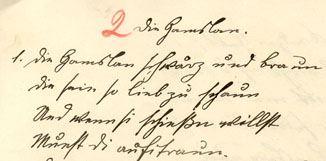 2 Die Gamslan.
1. die Gamslan schwarz und braun
die sein so lieb zu schaun
Und wenn si schießn willst
Muest di aufitraun.